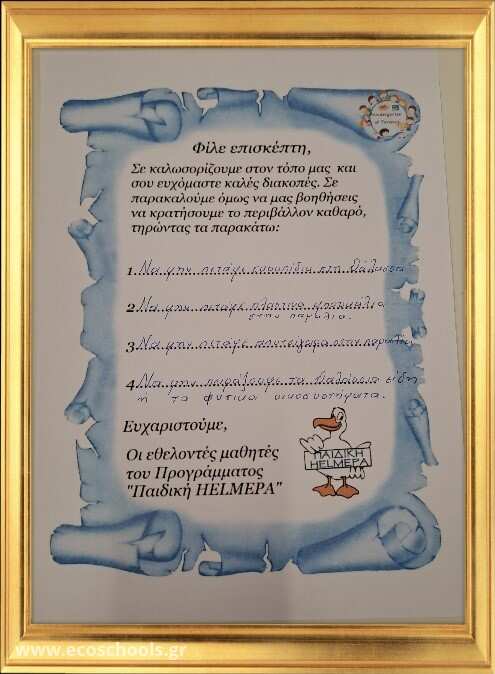 Kindergarten
Φίλε επισκέπτη,
Σε καλωσορίζουμε στον τόπο μας και
σου ευχόμαστε καλές διακοπές. Σε
παρακαλούμε όμως να μας βοηθήσεις
να κρατήσουμε το περιβάλλον καθαρό,
τηρώντας τα παρακάτω:
1. Να μην πετάμε σκουπίδια στη θάλασσα
2. Να μην πετάμε πλαστικά μπουκάλια
στην παραλία.
3. Να μην πετάμε αποτσίγαρα στην παραλία
4. Να μην πειράξουμε τα θαλάσσια είδη
ή τα φυτικά οικοσυστήματα.
Ευχαριστούμε,
Οι εθελοντές μαθητές
του Προγράμματος
"Παιδική HELMEPA"
ΠΑΙΔΙΚΗ
HELMEPA
www.ecoschools.gr